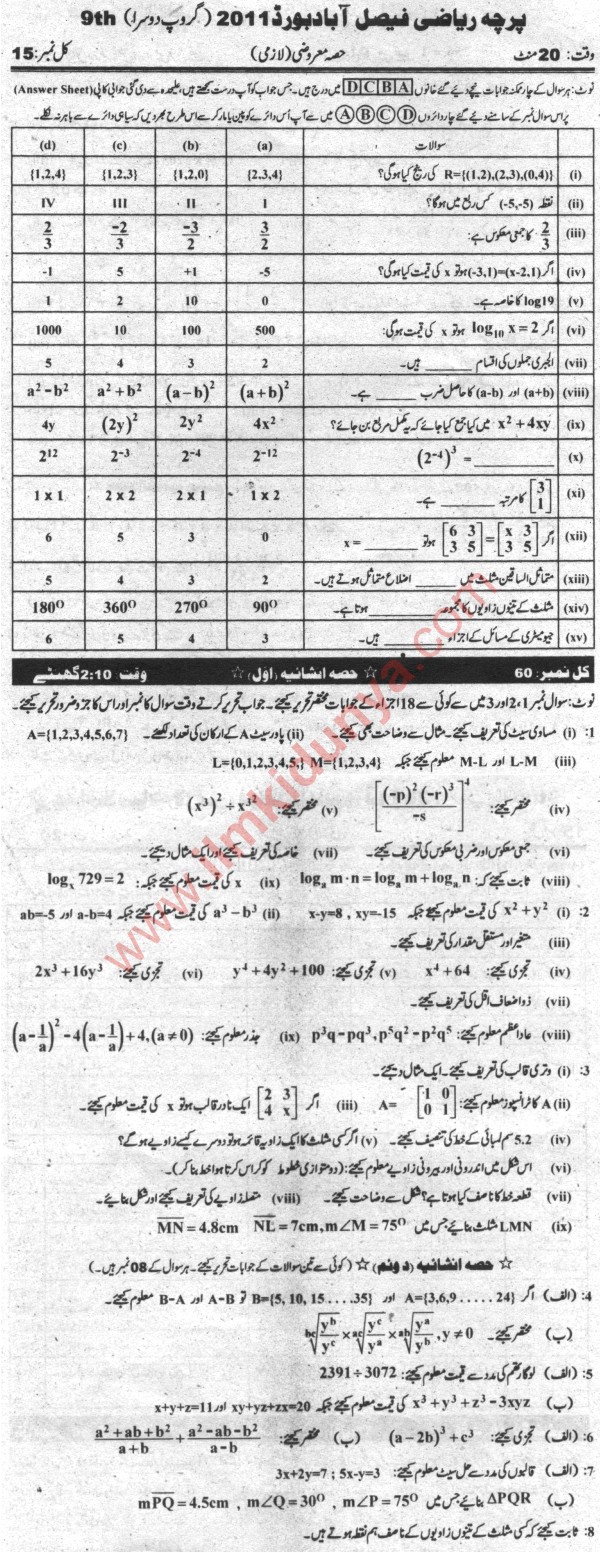 پرچہ ریاضی فیصل آباد بورڈ 2011 (گروپ دوسرا) 9th
وقت: 20 منٹ حصہ معروضی (لازمی) کل نمبر: 15
نوٹ: ہر سوال کے چار ممکنہ جوابات نیچے دیے گئے خانوں D C B A میں درج ہیں۔ جس جواب کو آپ درست سمجھتے ہیں، علیحدہ سے دی گئی جوابی کاپی (Answer Sheet)
پر اس سوال نمبر کے سامنے دیے گئے چار دائروں A B C D میں سے آپ اُس دائرے کو پین یا مارکر سے اس طرح بھر دیں کہ سیاہی دائرے سے باہر نہ نکلے۔
سوالات (a) (b) (c) (d)
(i) R={(1,2),(2,3),(0,4)} کی رینج کیا ہوگی؟ {2,3,4} {1,2,0} {1,2,3} {1,2,4}
(ii) نقطہ (-5,-5) کس ربع میں ہوگا؟ I II III IV
(iii) 2/3 کا جمعی معکوس ہے: 3/2 -3/2 -2/3 2/3
(iv) اگر (-3,1)=(x-2,1) ہو تو x کی قیمت کیا ہوگی؟ -5 +1 5 -1
(v) log19 کا خاصہ ہے۔ 0 10 2 1
(vi) اگر log₁₀ x = 2 ہو تو x کی قیمت ہوگی: 500 100 10 1000
(vii) الجبری جملوں کی اقسام ______ ہیں۔ 2 3 4 5
(viii) (a+b) اور (a-b) کا حاصل ضرب ______ ہے۔ (a+b)² (a−b)² a²+b² a²−b²
(ix) x²+4xy میں کیا جمع کیا جائے کہ یہ مکمل مربع بن جائے؟ 4x² 2y² (2y)² 4y
(x) (2⁻⁴)³ = ______ 2⁻¹² 2⁻⁴ 2⁻³ 2¹²
(xi) [3 1] کا مرتبہ ______ ہے۔ 1 x 2 2 x 1 2 x 2 1 x 1
(xii) اگر [6 3 3 5] = [x 3 3 5] ہو تو x = ______ 0 3 5 6
(xiii) متماثل الساقین مثلث میں ______ اضلاع متماثل ہوتے ہیں۔ 2 3 4 5
(xiv) مثلث کے تینوں زاویوں کا مجموعہ ______ ہوتا ہے۔ 90° 270° 360° 180°
(xv) جیومیٹری کے مسائل کے اجزاء ______ ہیں۔ 3 4 5 6
کل نمبر: 60 ☆ حصہ انشائیہ (اوّل) ☆ وقت: 2:10 گھنٹے
نوٹ: سوال نمبر 1، 2 اور 3 میں سے کوئی سے 18 اجزاء کے جوابات مختصر تحریر کیجئے۔ جواب تحریر کرتے وقت سوال کا نمبر اور اس کا جز ضرور تحریر کیجئے۔
1: (i) مساوی سیٹ کی تعریف کیجئے۔ مثال سے وضاحت بھی کیجئے۔ (ii) پاور سیٹ A کے ارکان کی تعداد لکھئے۔ A={1,2,3,4,5,6,7}
(iii) L-M اور M-L معلوم کیجئے جبکہ L={0,1,2,3,4,5,} M={1,2,3,4}
(iv) مختصر کیجئے: [(-p)²(-r)³/-s]⁴ (v) مختصر کیجئے: (x³)² ÷ x³²
(vi) جمعی معکوس اور ضربی معکوس کی تعریف کیجئے۔ (vii) خاصہ کی تعریف کیجئے اور ایک مثال دیجئے۔
(viii) ثابت کیجئے کہ: logₐ m·n = logₐ m + logₐ n (ix) x کی قیمت معلوم کیجئے جبکہ: logₓ 729 = 2
2: (i) x²+y² کی قیمت معلوم کیجئے جبکہ x-y=8 , xy=-15 (ii) a³−b³ کی قیمت معلوم کیجئے جبکہ a-b=4 اور ab=-5
(iii) متغیر اور مستقل مقدار کی تعریف کیجئے۔
(iv) تجزی کیجئے: x⁴+64 (v) تجزی کیجئے: y⁴+4y²+100 (vi) تجزی کیجئے: 2x³+16y³
(vii) ذواضعاف اقل کی تعریف کیجئے۔
(viii) عاد اعظم معلوم کیجئے: p³q−pq³, p⁵q²−p²q⁵ (ix) جذر معلوم کیجئے: (a−1/a)²−4(a−1/a)+4, (a≠0)
3: (i) وتری قالب کی تعریف کیجئے۔ ایک مثال دیجئے۔
(ii) A کا ٹرانسپوز معلوم کیجئے: A= [1 0 0 1] (iii) اگر [2 3 4 x] ایک نادر قالب ہو تو x کی قیمت معلوم کیجئے۔
(iv) 5.2 سم لمبائی کے خط کی تنصیف کیجئے۔ (v) اگر کسی مثلث کا ایک زاویہ قائمہ ہو تو دوسرے کیسے زاویے ہوں گے؟
(vi) اس شکل میں اندرونی اور بیرونی زاویے معلوم کیجئے: (دو متوازی خطوط کو کراس کرتا ہوا خط بنا کر)۔
(vii) قطعہ خط کا ناصف کیا ہوتا ہے؟ شکل سے وضاحت کیجئے۔ (viii) متصلہ زاویے کی تعریف کیجئے اور شکل بنائیے۔
(ix) LMN مثلث بنائیے جس میں MN = 4.8cm NL = 7cm, m∠M = 75°
☆ حصہ انشائیہ (دوئم) ☆ (کوئی سے تین سوالات کے جوابات تحریر کیجئے۔ ہر سوال کے 08 نمبر ہیں۔)
4: (الف) اگر A={3,6,9.....24} اور B={5, 10, 15 ....35} تو A-B اور B-A معلوم کیجئے۔
(ب) مختصر کیجئے۔ ᵇᶜ√(yᵇ/yᶜ) × ᵃᶜ√(yᶜ/yᵃ) × ᵃᵇ√(yᵃ/yᵇ), y ≠ 0
5: (الف) لوگارتھم کی مدد سے قیمت معلوم کیجئے: 2391÷3072
(ب) x³+y³+z³−3xyz کی قیمت معلوم کیجئے جبکہ xy+yz+zx=20 اور x+y+z=11
6: (الف) تجزی کیجئے: (a−2b)³+c³ (ب) مختصر کیجئے: (a²+ab+b²)/(a+b) + (a²−ab−b²)/(a−b)
7: (الف) قالبوں کی مدد سے حل سیٹ معلوم کیجئے: 3x+2y=7 ; 5x-y=3
(ب) ΔPQR بنائیے جس میں mPQ = 4.5cm , m∠Q = 30° , m∠P = 75°
8: ثابت کیجئے کہ کسی مثلث کے تینوں زاویوں کے ناصف ہم نقطہ ہوتے ہیں۔
www.ilmkidunya.com